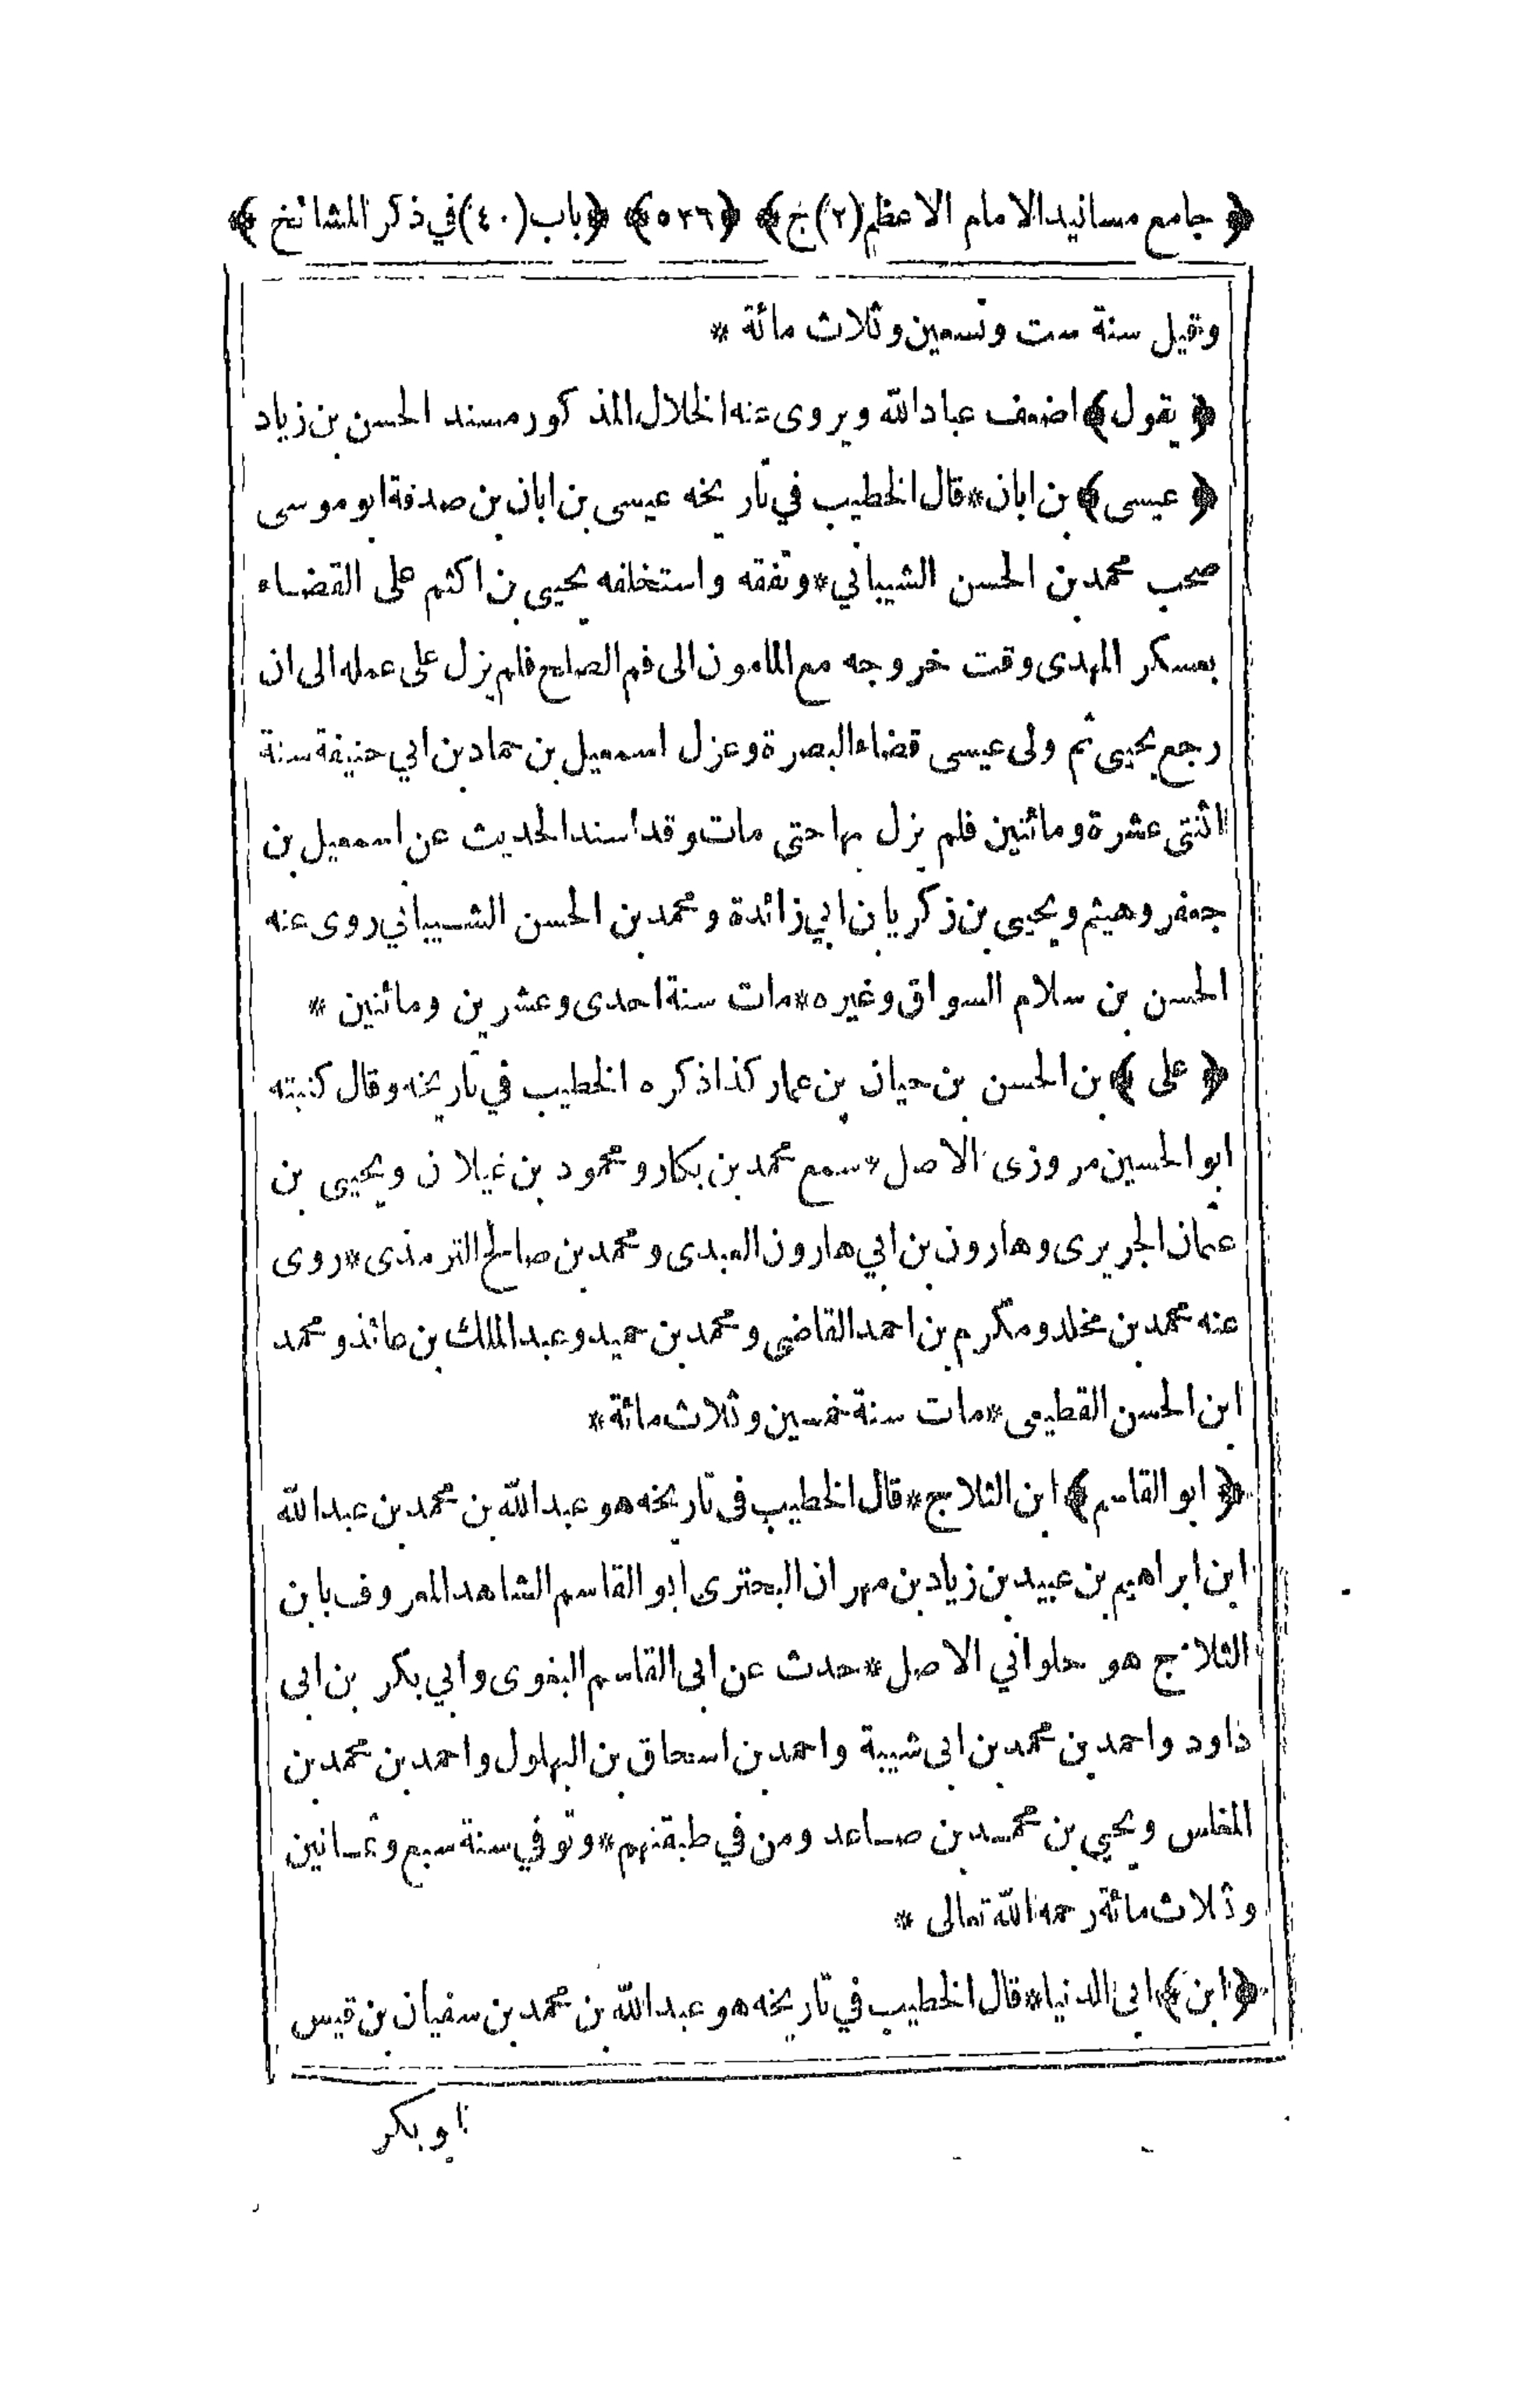 ﴿ جامع مسانيد الامام الاعظم (٢) ج ﴾ ﴿ ٥٣٦ ﴾ ﴿ باب (٤٠) في ذكر المشائخ ﴾
وقيل سنة ست وتسعين وثلاث مائة *
﴿ يقول ﴾ اضعف عباد الله ويروى عنه الخلال المذكور مسند الحسن بن زياد
﴿ عيسى ﴾ بن ابان * قال الخطيب في تاريخه عيسى بن ابان بن صدقة ابو موسى
صحب محمد بن الحسن الشيباني * وتفقه واستخلفه يحيى بن اكثم على القضاء
بعسكر المهدى وقت خروجه مع المامون الى فم الصلح فلم يزل على عمله الى ان
رجع يحيى ثم ولى عيسى قضاء البصرة وعزل اسمعيل بن حماد بن ابي حنيفة سنة
اثنتى عشرة ومائتين فلم يزل بها حتى مات وقد اسند الحديث عن اسمعيل بن
جعفر وهيثم ويحيى بن زكريا بن ابي زائدة ومحمد بن الحسن الشيباني روى عنه
الحسن بن سلام السواق وغيره * مات سنة احدى وعشرين ومائتين *
﴿ على ﴾ بن الحسن بن حيان بن عمار كذا ذكره الخطيب في تاريخه وقال كنيته
ابو الحسين مروزى الاصل * سمع محمد بن بكار ومحمود بن غيلان ويحيى بن
عثمان الجريرى وهارون بن ابي هارون العبدى ومحمد بن صالح الترمذى * روى
عنه محمد بن مخلد ومكرم بن احمد القاضى ومحمد بن حميد وعبد الملك بن عائذ ومحمد
ابن الحسن القطيعى * مات سنة خمسين وثلاث مائة *
﴿ ابو القاسم ﴾ ابن الثلاج * قال الخطيب فى تاريخه هو عبد الله بن محمد بن عبد الله
ابن ابراهيم بن عبيد بن زياد بن مهران البحترى ابو القاسم الشاهد المعروف بابن
الثلاج هو حلواني الاصل * حدث عن ابى القاسم البغوى وابي بكر بن ابى
داود واحمد بن محمد بن ابى شيبة واحمد بن اسحاق بن البهلول واحمد بن محمد بن
المغلس ويحيى بن محمد بن صاعد ومن في طبقتهم * وتوفي سنة سبع وثمانين
وثلاث مائة رحمه الله تعالى *
﴿ ابن ﴾ ابى الدنيا * قال الخطيب في تاريخه هو عبد الله بن محمد بن سفيان بن قيس
ابو بكر